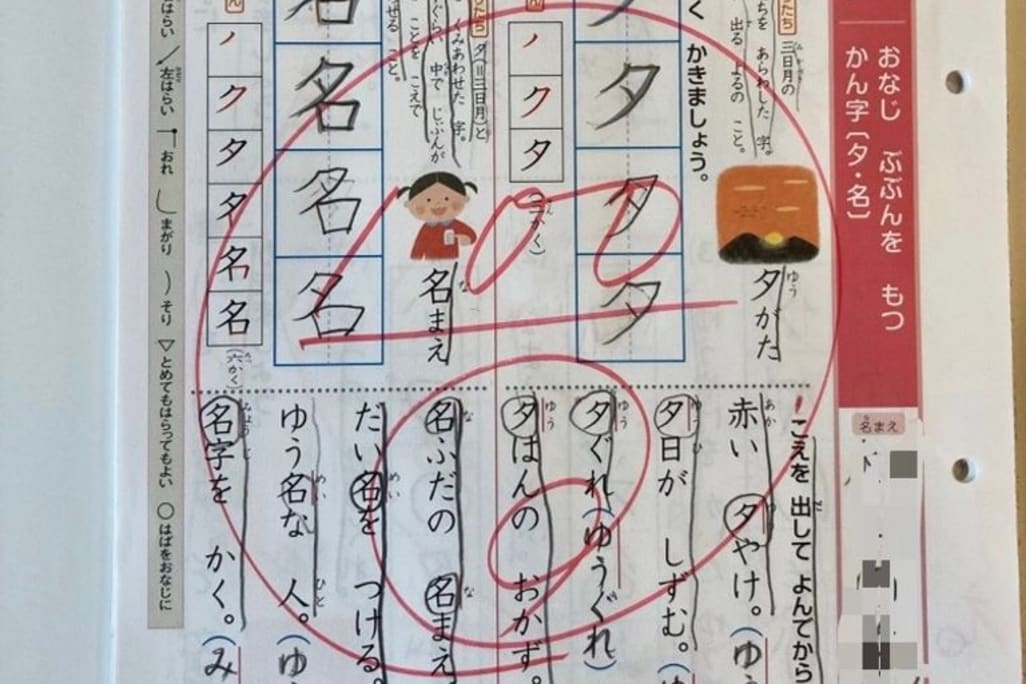 おなじ ぶぶんを もつ
かん字〔夕・名〕
名まえ
三日月の
ちを あらわした 字。
出る よるの こと。
夕がた
ゆう
く かきましょう。
夕
夕
夕
ノ
ク
夕
(三かく)
夕(=三日月)と
くみあわせた 字。
ぐらい 中で じぶんが
ことを こえで
せる こと。
名まえ
な
名
名
名
ノ
ク
夕
夕
名
名
(六かく)
100
こえを 出して よんでから
赤い 夕やけ。(ゆう
夕日が しずむ。(ゆ
夕ぐれ(ゆうぐれ)
夕はんの おかず。
名ふだの 名まえ
だい名を つける。
ゆう名な 人。(ゆ
名字を かく。(み
はらい
左はらい
おれ
まがり
そり
とめてもはらってもよい
はばをおなじに